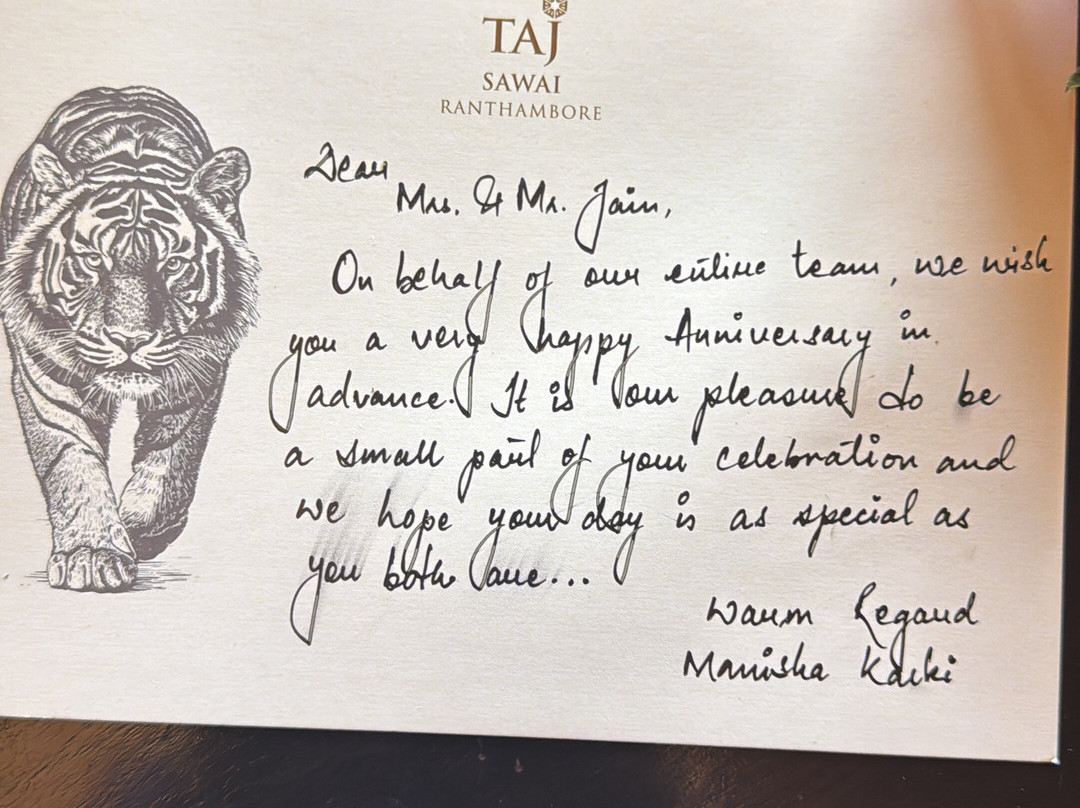 TAJ
SAWAI
RANTHAMBORE
Dear
Mrs. & Mr. Jain,
On behalf of our entire team, we wish
you a very happy Anniversary in
advance. It is our pleasure to be
a small part of your celebration and
we hope your day is as special as
you both are...
Warm Regard
Manisha Karki